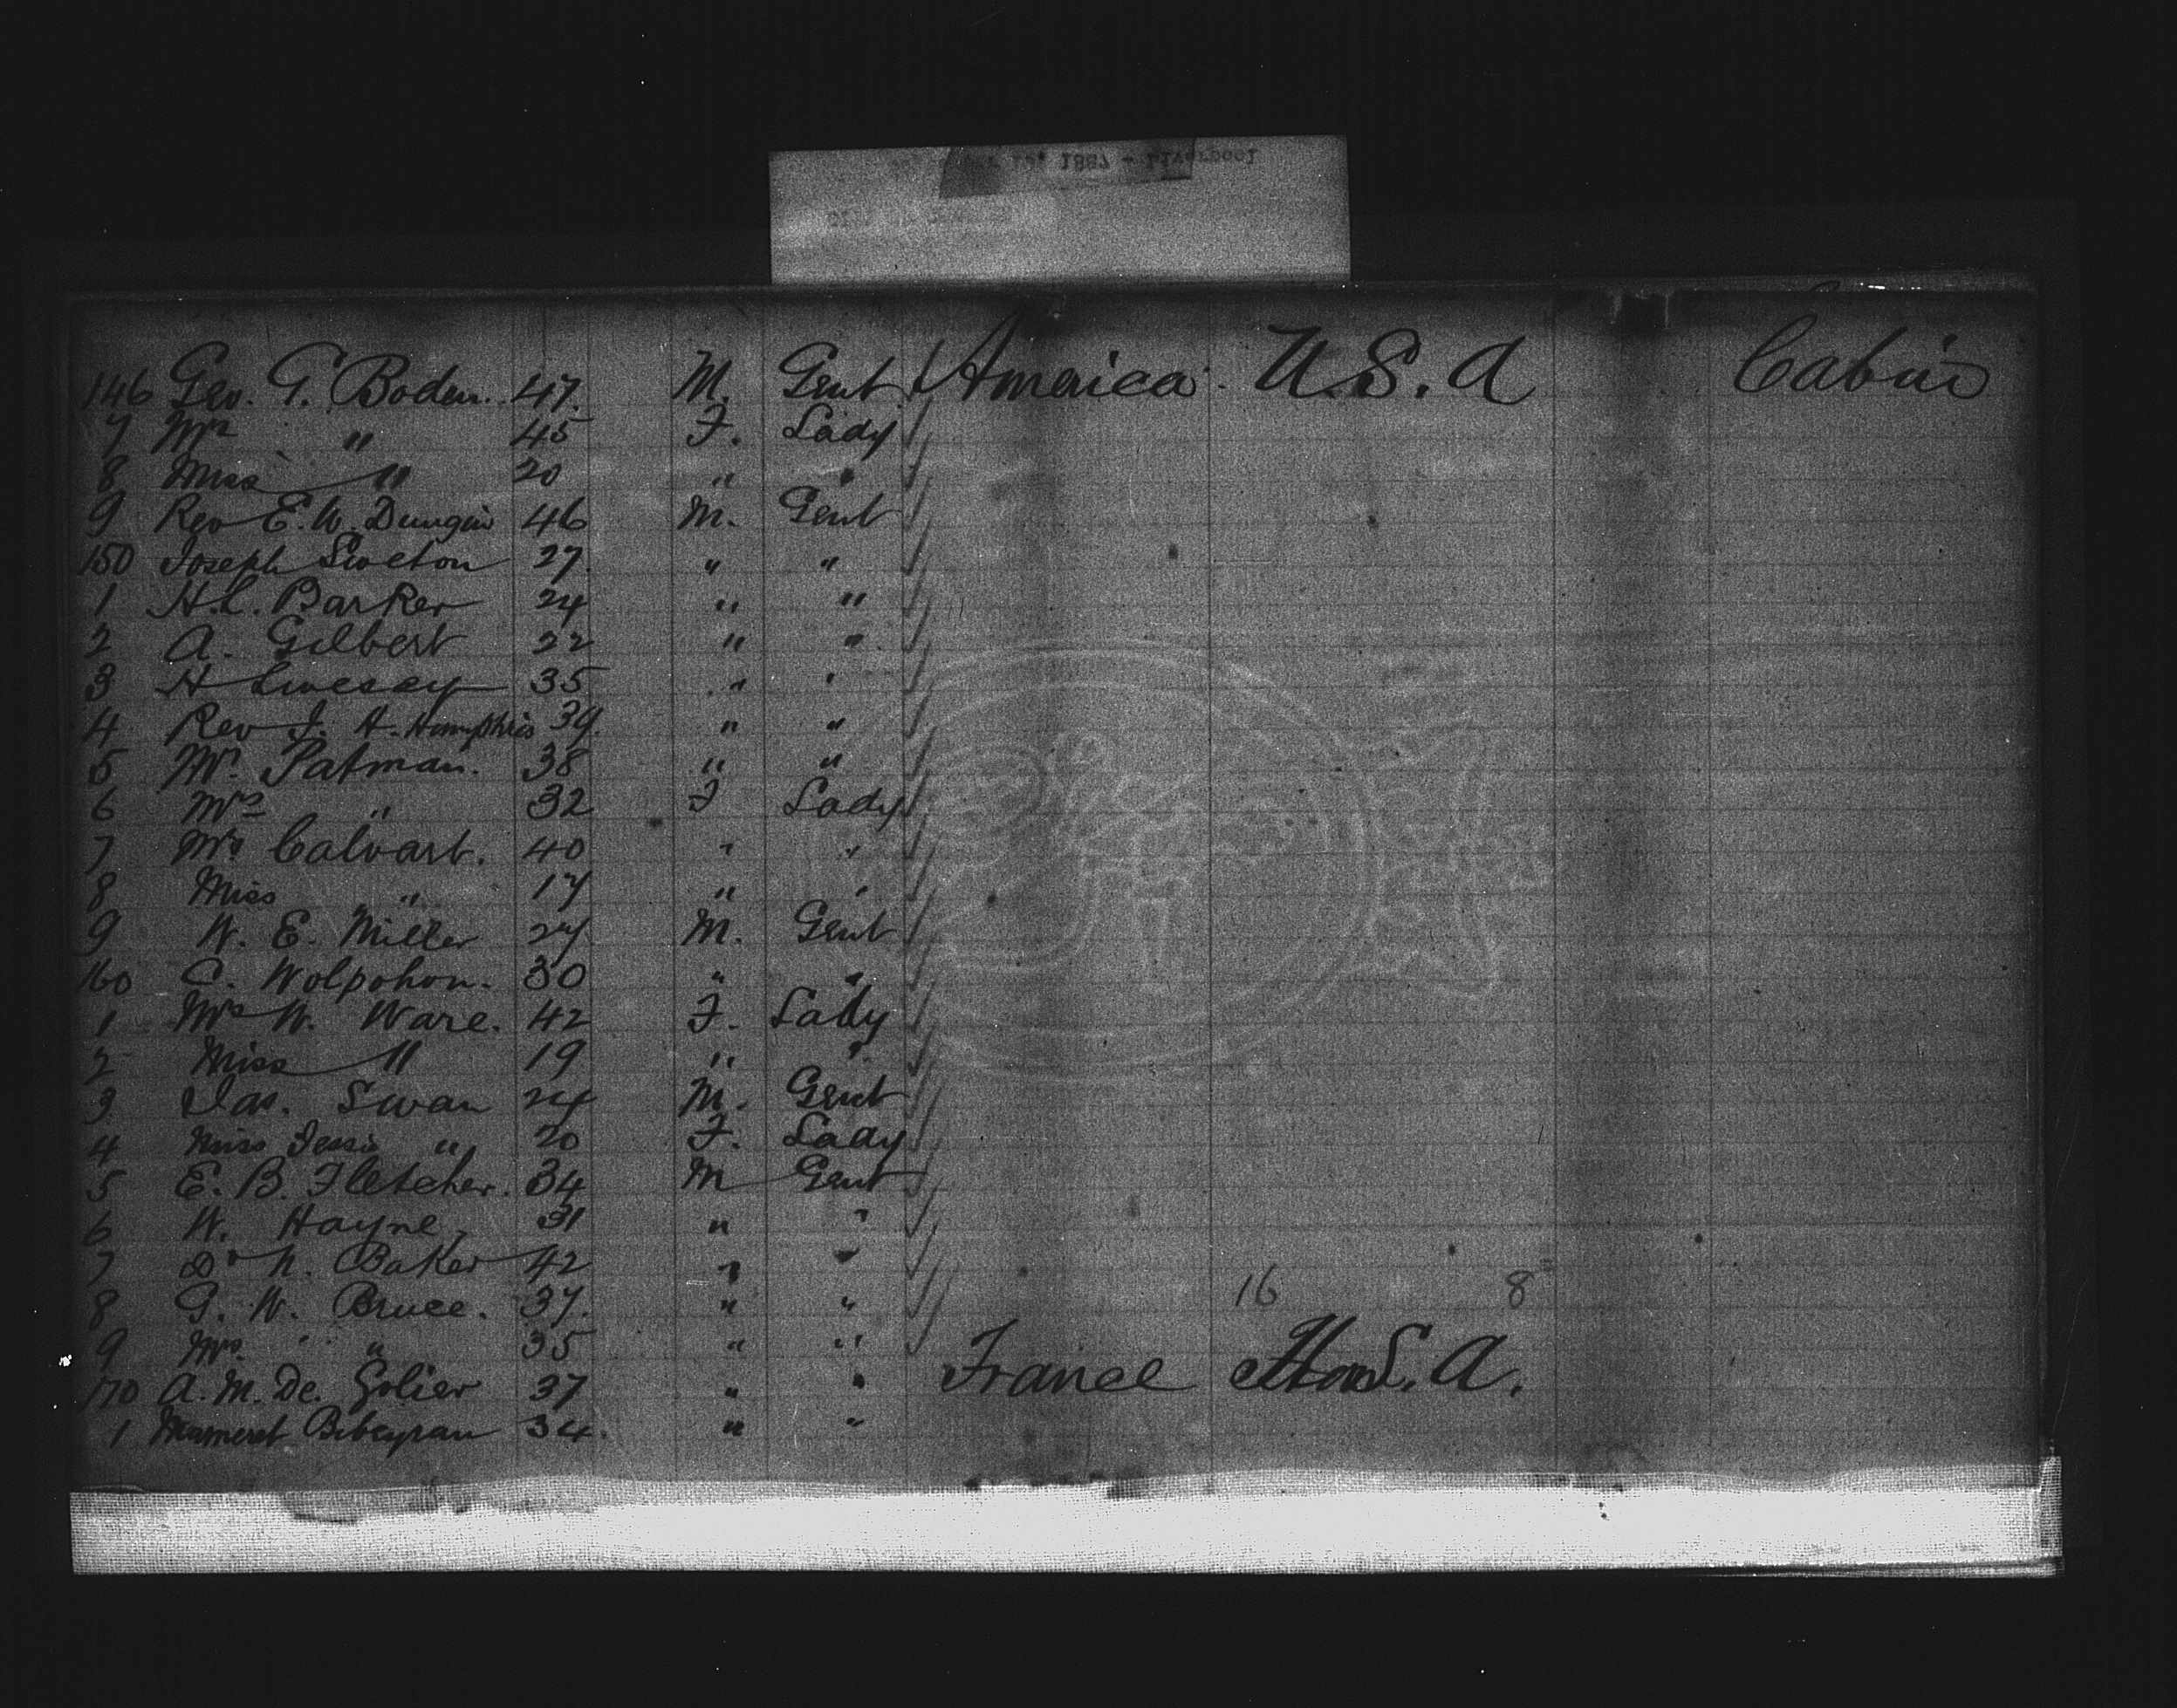 1887 - Liverpool
146 Geo. G. Boden. 47. M. Gent America. U.S.A Cabin
7 Mrs " 45 F. Lady
8 Miss " 20 " "
9 Rev E. W. 46 M. Gent
150 Joseph 27. " "
1 H.L. Barker 24 " "
2 A. Gilbert 22 " "
3 H Livesey 35 " "
4 Rev J. H. Humphries 39. " "
5 Mr. Patman. 38 " "
6 Mrs " 32 F Lady
7 Mrs Calvart. 40 " "
8 Miss " 17 " "
9 W. E. Miller 27 M. Gent
160 C. Wolpohon. 30 " "
1 Mrs W. Ware. 42 F. Lady
2 Miss " 19 " "
3 Jas. Swan 24 M. Gent
4 Miss Jessie " 20 F. Lady
5 E. B. Fletcher. 34 M Gent
6 W. Hayne, 31 " "
7 Dr N. Baker 42 " "
8 G. W. Bruce. 37. " " 16 8
9 Mrs. " 35 " "
170 A. M. De. Golier 37 " " France S. A.
1 34. " "